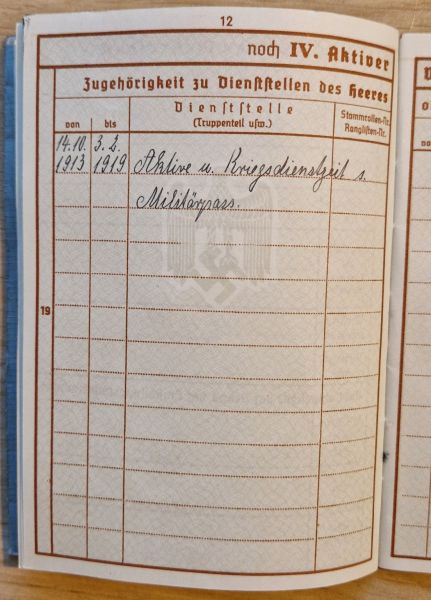 12
noch IV. Aktiver
Zugehörigkeit zu Dienststellen des Heeres
von
bis
Dienststelle
(Truppenteil usw.)
Stammrollen-Nr.
Ranglisten-Nr.
14.10. 3.2.
1913 1919 Aktive u. Kriegsdienstzeit s.
Militärpass.
19